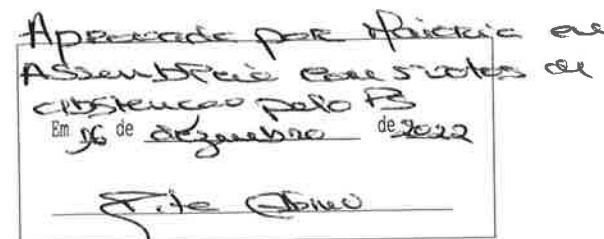 Aprovado por Maioria em
Assembleia com 5 votos de
abstenção pelo PS
Em 16 de dezembro de 2022
Abreu